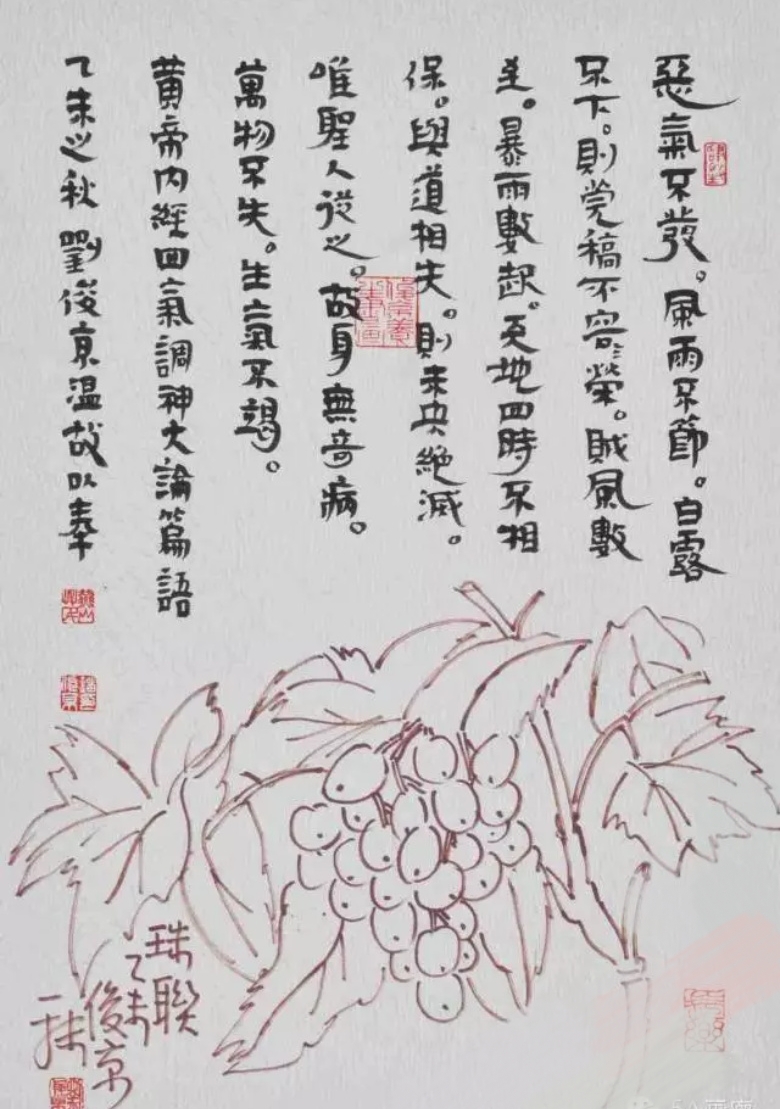 惡氣不發。風雨不節。白露
不下。則菀槁不容榮。賊風數
至。暴雨數起。天地四時不相
保。與道相失。則未央絕滅。
唯聖人從之。故身無奇病。
萬物不失。生氣不竭。
黃帝內經四氣調神大論篇語
乙未之秋劉俊京溫故以奉
珠聯
乙未
俊京